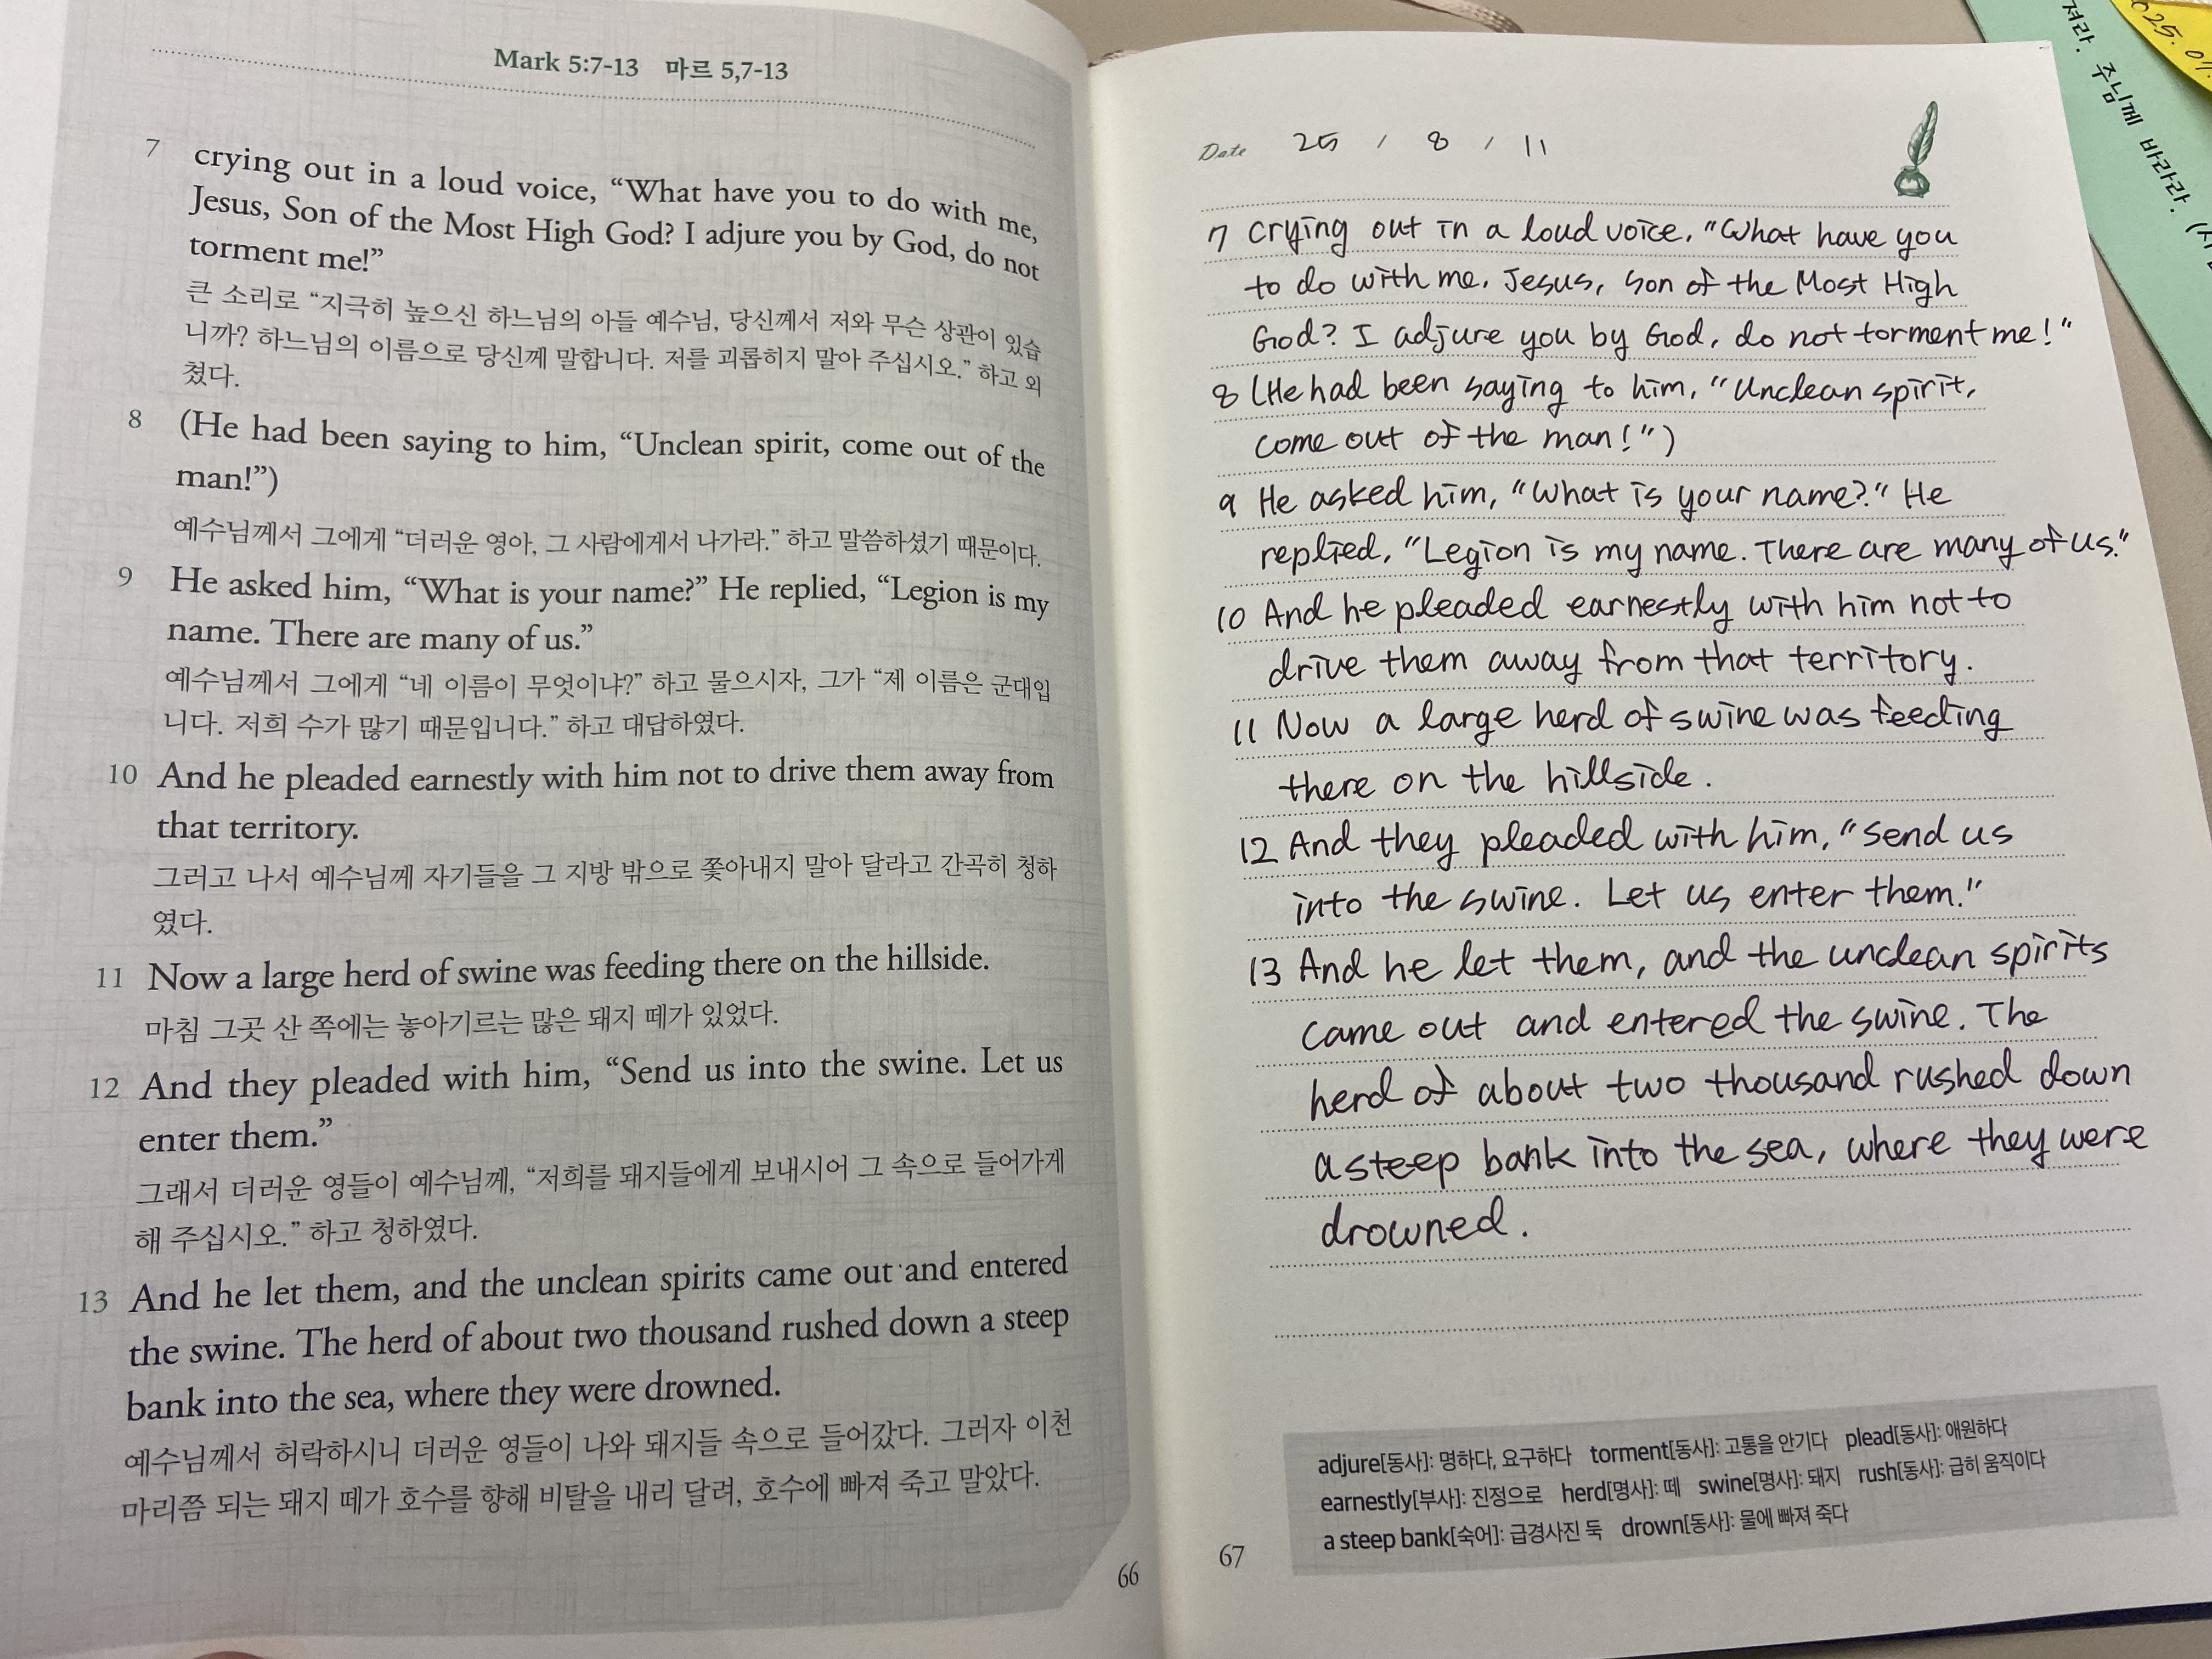 Mark 5:7-13 마르 5,7-13
7 crying out in a loud voice, “What have you to do with me,
Jesus, Son of the Most High God? I adjure you by God, do not
torment me!”
큰 소리로 “지극히 높으신 하느님의 아들 예수님, 당신께서 저와 무슨 상관이 있습
니까? 하느님의 이름으로 당신께 말합니다. 저를 괴롭히지 말아 주십시오.” 하고 외
쳤다.
8 (He had been saying to him, “Unclean spirit, come out of the
man!”)
예수님께서 그에게 “더러운 영아, 그 사람에게서 나가라.” 하고 말씀하셨기 때문이다.
9 He asked him, “What is your name?” He replied, “Legion is my
name. There are many of us.”
예수님께서 그에게 “네 이름이 무엇이냐?” 하고 물으시자, 그가 “제 이름은 군대입
니다. 저희 수가 많기 때문입니다.” 하고 대답하였다.
10 And he pleaded earnestly with him not to drive them away from
that territory.
그러고 나서 예수님께 자기들을 그 지방 밖으로 쫓아내지 말아 달라고 간곡히 청하
였다.
11 Now a large herd of swine was feeding there on the hillside.
마침 그곳 산 쪽에는 놓아기르는 많은 돼지 떼가 있었다.
12 And they pleaded with him, “Send us into the swine. Let us
enter them.”
그래서 더러운 영들이 예수님께, “저희를 돼지들에게 보내시어 그 속으로 들어가게
해 주십시오.” 하고 청하였다.
13 And he let them, and the unclean spirits came out and entered
the swine. The herd of about two thousand rushed down a steep
bank into the sea, where they were drowned.
예수님께서 허락하시니 더러운 영들이 나와 돼지들 속으로 들어갔다. 그러자 이천
마리쯤 되는 돼지 떼가 호수를 향해 비탈을 내리 달려, 호수에 빠져 죽고 말았다.
66
Date 25 / 8 / 11
7 crying out in a loud voice, "What have you
to do with me, Jesus, Son of the Most High
God? I adjure you by God, do not torment me!"
8 (He had been saying to him, "Unclean spirit,
come out of the man!")
9 He asked him, "What is your name?" He
replied, "Legion is my name. There are many of us."
10 And he pleaded earnestly with him not to
drive them away from that territory.
11 Now a large herd of swine was feeding
there on the hillside.
12 And they pleaded with him, "Send us
into the swine. Let us enter them."
13 And he let them, and the unclean spirits
came out and entered the swine. The
herd of about two thousand rushed down
a steep bank into the sea, where they were
drowned.
adjure[동사]: 명하다, 요구하다 torment[동사]: 고통을 안기다 plead[동사]: 애원하다
earnestly[부사]: 진정으로 herd[명사]: 떼 swine[명사]: 돼지 rush[동사]: 급히 움직이다
a steep bank[숙어]: 급경사진 둑 drown[동사]: 물에 빠져 죽다
67
주님께 바라라.